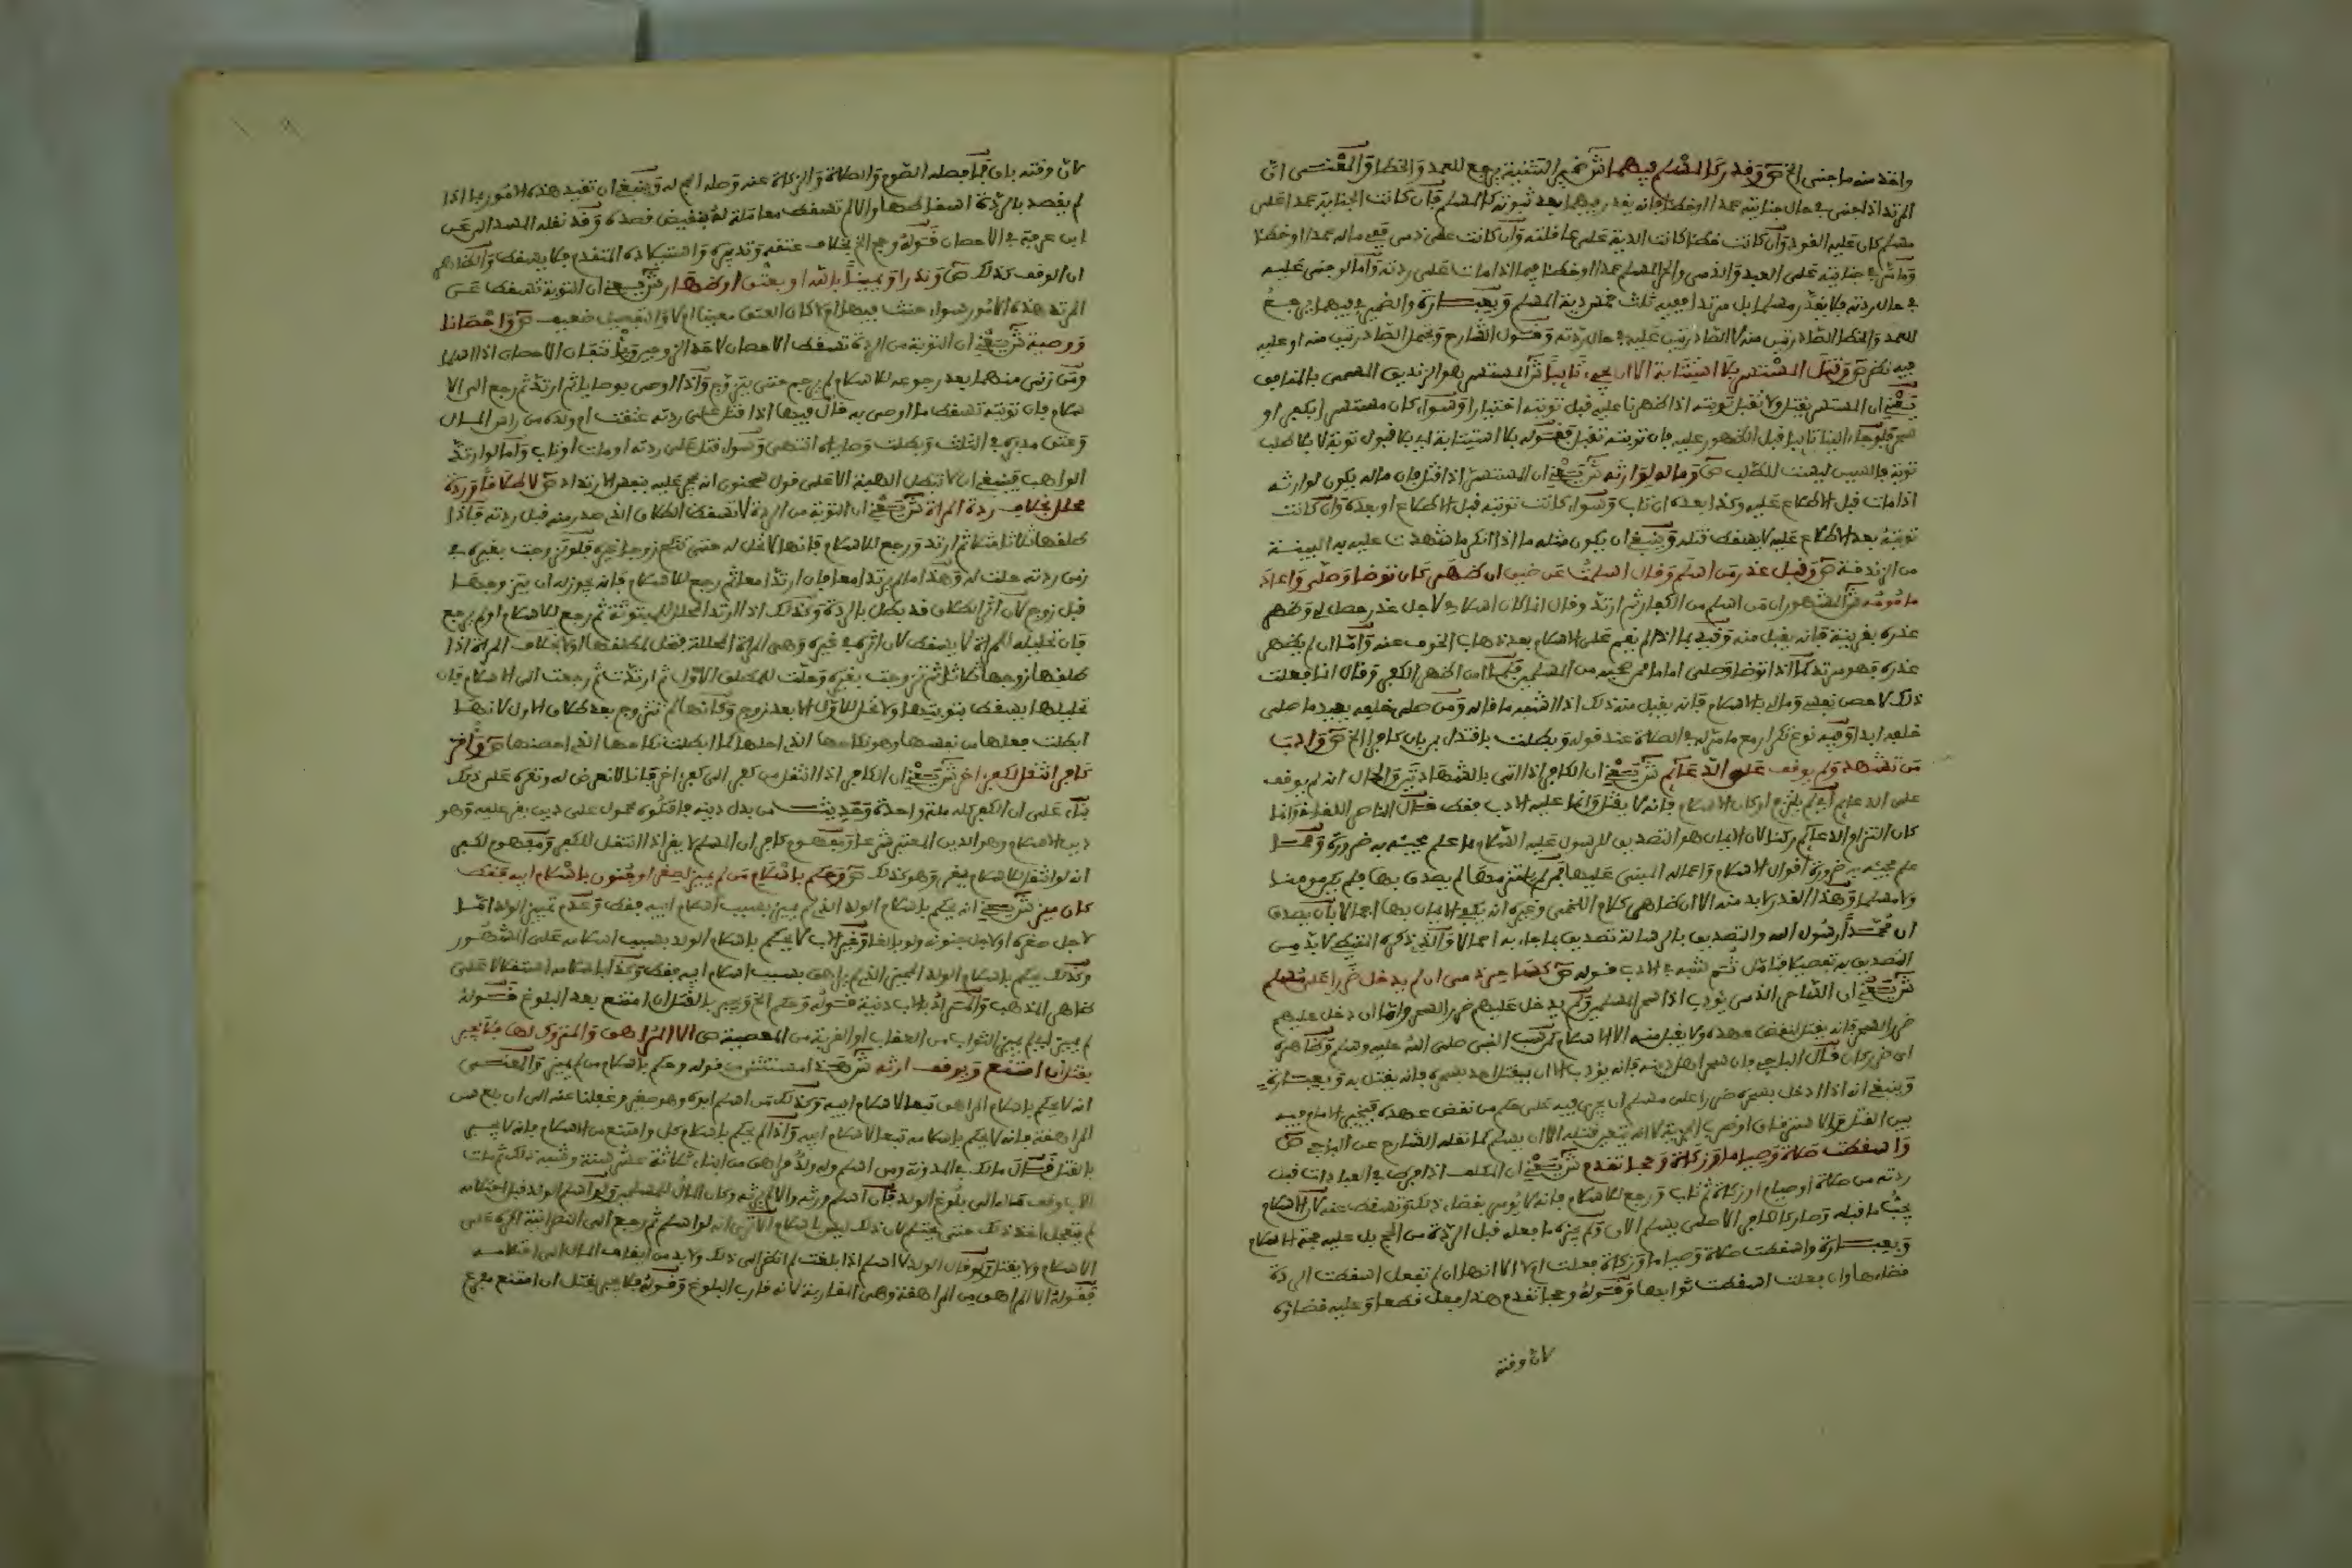 واخذ منه ما جنى الخ ص وقدر كالمسلم فيهما ش ضمير التثنية يرجع للعمد والخطا والمعنى ان
المرتد اذا جنى في حال جنايته عمدا او خطا فانه يقدر فيهما بعد توبته كالمسلم فان كانت الجناية عمدا على
مسلم كان عليه القود وان كانت خطا كانت الدية على عاقلته وان كانت على ذمي ففي ماله عمدا او خطا
وما مر في جنايته على العبد والذمي والحر المسلم عمدا او خطا فيما اذا مات على ردته واما لو جنى عليه
في حال ردته فلا يقدر مسلما بل مرتدا ففيه ثلث خمس دية المسلم وبعبارة والضمير في فيهما يرجع
للعمد والخطا الصادرين منه لا الصادرين عليه في حال ردته وقول الشارح ويحتمل الصادرين منه او عليه
فيه نظر ص وقتل المستسر بلا استتابة الا ان يجيء تائبا ش المستسر هو الزنديق المسمى بالمنافق
يعني ان المستسر يقتل ولا تقبل توبته اذا ظهرنا عليه قبل توبته اختيارا وسواء كان مستسرا بكفر او
سحر فلو جاء الينا تائبا قبل الظهور عليه فان توبته تقبل فقوله بلا استتابة اي بلا قبول توبة لا بلا طلب
توبة فالسين ليست للطلب ص وماله لوارثه ش يعني ان المستسر اذا قتل فان ماله يكون لوارثه
اذا مات قبل الاطلاع عليه وكذا بعده ان تاب وسواء كانت توبته قبل الاطلاع او بعده وان كانت
توبته بعد الاطلاع عليه لا يسقط قتله وينبغي ان يكون مثله ما اذا انكر ما شهدت عليه به البينة
من الزندقة ص وقبل عذر من اسلم وقال اسلمت عن ضيق ان ظهر كان توضا وصلى واعاد
مامومه ش المشهور ان من اسلم من الكفار ثم ارتد وقال انما كان اسلامي لاجل عذر حصل لي وظهر
عذره بقرينة فانه يقبل منه وقيد بما اذا لم يقم على الاسلام بعد ذهاب الخوف عنه واما ان لم يظهر
عذره فهو مرتد كما اذا توضا وصلى اماما لمن صحبه من المسلمين فلما امن اظهر الكفر وقال انما فعلت
ذلك لاحصن نفسي ومالي بالاسلام فانه يقبل منه ذلك اذا اشبه ما قاله ومن صلى خلفه يعيد ما صلى
خلفه ابدا وفيه نوع تكرار مع ما مر له في الصلاة عند قوله وبطلت باقتداء بمن بان كافرا الخ ص وادب
من تشهد ولم يوقف على الدعائم ش يعني ان الكافر اذا اتى بالشهادتين والحال انه لم يوقف
على الدعائم اي لم يلتزم اركان الاسلام فانه لا يقتل وانما عليه الادب فقط قال الناصر اللقاني وانما
كان التزام الدعائم ركنا لان الايمان هو التصديق للرسول عليه السلام بما علم مجيئه به ضرورة ومما
علم مجيئه به ضرورة اقوال الاسلام واعماله المبني عليها فمن لم يلتزمها لم يصدق بها فلم يكن مومنا
ولا مسلما وهذا القدر لا بد منه الا ان ظاهر كلام اللخمي وغيره انه يكفي الايمان بها اجمالا بان يصدق
ان محمدا رسول الله والتصديق بالرسالة تصديق بما جاء به اجمالا والذي ذكره القبطي لا بد من
التصديق به تفصيلا فتامل ثم شبه في الادب قوله ص كساحر ذمي ان لم يدخل ضررا على مسلم
ش يعني ان الساحر الذمي يودب اذا سحر المسلمين ولم يدخل عليهم ضررا لسحر واما ان دخل عليهم
ضرر السحر فانه يقتل لنقض عهده ولا يقبل منه الا الاسلام كمن سب النبي صلى الله عليه وسلم وظاهره
اي ضرر كان قال الباجي فان سحر اهل دينه فانه يؤدب الا ان يقتل احد بسحره فانه يقتل به وبعبارة
وينبغي انه اذا ادخل بسحره ضررا على مسلم ان يجري فيه على حكم من نقض عهده فيخير الامام فيه
بين القتل والاسترقاق او ضرب الجزية لا انه يتعين قتله الا ان يسلم كما نقله الشارح عن الباجي ص
واسقطت صلاة وصياما وزكاة وحجا تقدم ش يعني ان المكلف اذا فرط في العبادات قبل
ردته من صلاة او صيام او زكاة ثم تاب ورجع للاسلام فانه لا يؤمر بقضاء ذلك وتسقط عنه لان الاسلام
يجب ما قبله وصار كالكافر الاصلي يسلم الان ولم يجزه ما فعله قبل الردة من الحج بل عليه حجة الاسلام
وبعبارة واسقطت صلاة وصياما وزكاة فعلت ام لا الا انها ان لم تفعل اسقطت الردة
قضاءها وان فعلت اسقطت ثوابها وقوله وحجا تقدم هذا فعل قطعا وعليه قضاؤه
لان وقته
لان وقته باق فما فعله الصوم والصلاة والزكاة عنه وصله الحج له وينبغي ان تقيد هذه الامور بما اذا
لم يقصد بالردة اسقاطها والا لم تسقط معاملة له بنقيض قصده وقد نقله السيد البرعي عن
ابن عرفة في الاحصان قوله وحج الخ بخلاف عتقه وتدبيره واستيلاده المتقدم فلا يسقط والظاهر
ان الوقف كذلك ص ونذرا ويمينا بالله او بعتق او ظهار ش يعني ان التوبة تسقط عن
المرتد هذه الامور سواء حنث فيها ام لا كان العتق معينا ام لا والتفصيل ضعيف ص واحصانا
ووصية ش يعني ان التوبة من الردة تسقط الاحصان لاحد الزوجين فلا تنقل الاحصان اذا اسلما
ومن زنى منهما بعد رجوعه للاسلام لم يرجم حتى يتزوج واذا اوصى بوصايا ثم ارتد ثم رجع الى الا
سلام فان توبته تسقط ما اوصى به قال فيها اذا قتل على ردته عتقت ام ولده من راس المال
وعتق مدبره في الثلث وبطلت وصاياه انتهى وسواء قتل على ردته او مات او تاب واما لو ارتد
الواهب فينبغي ان لا تبطل الهبة الا على قول سحنون انه يحجر عليه بنفس الارتداد ص لا طلاقا وردة
محلل بخلاف ردة المراة ش يعني ان التوبة من الردة لا تسقط الطلاق الذي صدر منه قبل ردته فاذا
طلقها ثلاثا ثم ارتد ورجع للاسلام فانها لا تحل له حتى تنكح زوجا غيره فلو تزوجت بغيره في
زمن ردته حلت له وهذا ما لم يرتدا معا فان ارتدا معا ثم رجع للاسلام فانه يجوز له ان يتزوجها
قبل زوج لان اثر الطلاق قد بطل بالردة وكذلك اذا ارتد المحلل للمبتوتة ثم رجع للاسلام او لم يرجع
فان تحليله المراة لا يسقط لان اثره في غيره وهي المراة المحللة فتحل لمطلقها الاول بخلاف المراة اذا
طلقها زوجها ثلاثا ثم تزوجت بغيره وحلت للمطلق الاول ثم ارتدت ثم رجعت الى الاسلام فان
تحليلها يسقط بتوبتها ولا تحل للاول الا بعد زوج وكانها لم تتزوج بعد طلاق الاول لانها
ابطلت فعلها من نفسها وهو نكاحها الذي احلها كما ابطلت نكاحها الذي احصنها ص واقر
كافر انتقل لكفر اخر ش يعني ان الكافر اذا انتقل من كفر الى كفر اخر فاننا لا نعرض له ونقره على ذلك
بناء على ان الكفر كله ملة واحدة وحديث من بدل دينه فاقتلوه محمول على دين يقر عليه وهو
دين الاسلام وهو الدين المعتبر شرعا ومفهوم كافر ان المسلم لا يقر اذا انتقل للكفر ومفهوم لكفر
انه لو انتقل للاسلام يقر وهو كذلك ص وحكم باسلام من لم يميز لصغر او جنون باسلام ابيه فقط
كان ميز ش يعني انه يحكم باسلام الولد الذي لم يميز بسبب اسلام ابيه فقط وعدم تمييز الولد اما
لاجل صغره او لاجل جنونه ولو بالغا وغير الاب لا يحكم باسلام الولد بسبب اسلامه على المشهور
وكذلك يحكم باسلام الولد المميز الذي لم يراهق بسبب اسلام ابيه فقط وكذا باسلامه استقلالا على
ظاهر المذهب والمراد بالاب دنية فقوله وحكم الخ ويجبر بالقتل ان امتنع بعد البلوغ فقوله
لم يميز اي لم يميز الثواب من العقاب او القربة من المعصية ص الا المراهق والمتروك لها فلا يجبر
بقتل ان امتنع ويوقف ارثه ش هذا مستثنى من قوله وحكم باسلام من لم يميز والمعنى
انه لا يحكم باسلام المراهق تبعا لاسلام ابيه وكذلك من اسلم ابوه وهو صغير وغفلنا عنه الى ان بلغ سن
المراهقة فانه لا يحكم باسلامه تبعا لاسلام ابيه واذا لم يحكم باسلام كل وامتنع من الاسلام فانه لا يجبر
بالقتل قال مالك في المدونة ومن اسلم وله ولد مراهق من ابناء ثلاثة عشر سنة وشبه ذلك ثم مات
الاب وقف ماله الى بلوغ الولد فان اسلم ورثه والا لم يرثه وكان المال للمسلمين ولو اسلم الولد قبل احتلامه
لم يتعجل اخذ ذلك حتى يحتلم لان ذلك ليس باسلام الا ترى انه لو اسلم ثم رجع الى النصرانية اكره على
الاسلام ولا يقتل ولو قال الولد لا اسلم اذا بلغت لم انظر الى ذلك ولا بد من ايقاف المال الى احتلامه
فقوله الا المراهق من المراهقة وهي المقاربة لانه قارب البلوغ وقوله فلا يجبر بقتل ان امتنع مفرع